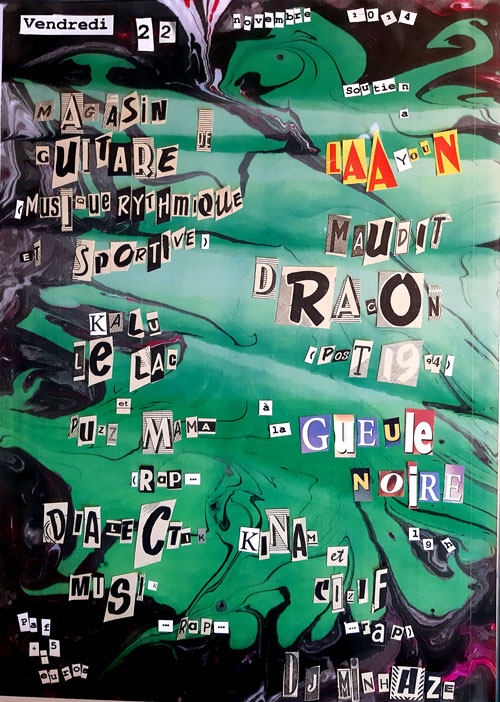 Vendredi 22 novembre 2024
Soutien
a
LAAyouN
MAGASIN DE
GUITARE
(MUSIQUE RYTHMIQUE
ET SPORTIVE)
MAUDIT
DRAGON
(POST 1994)
KALU
LE LAC
et
BUZZ MAMA
(RAP...
à
la GUEULE
NOIRE
19H
DIALECTIK
MUSIK
...RAP...
KINAM
et
CIZIF
...rap)
Paf
+-5
euros
DJ MINHAZE